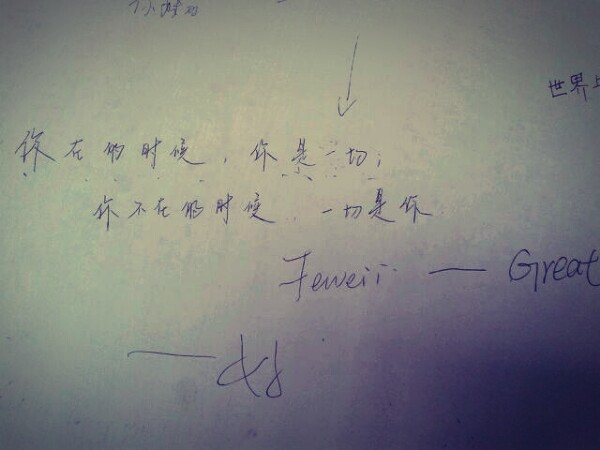 世界上
你在的时候，你是一切；
你不在的时候，一切是你
Jeweii — Great